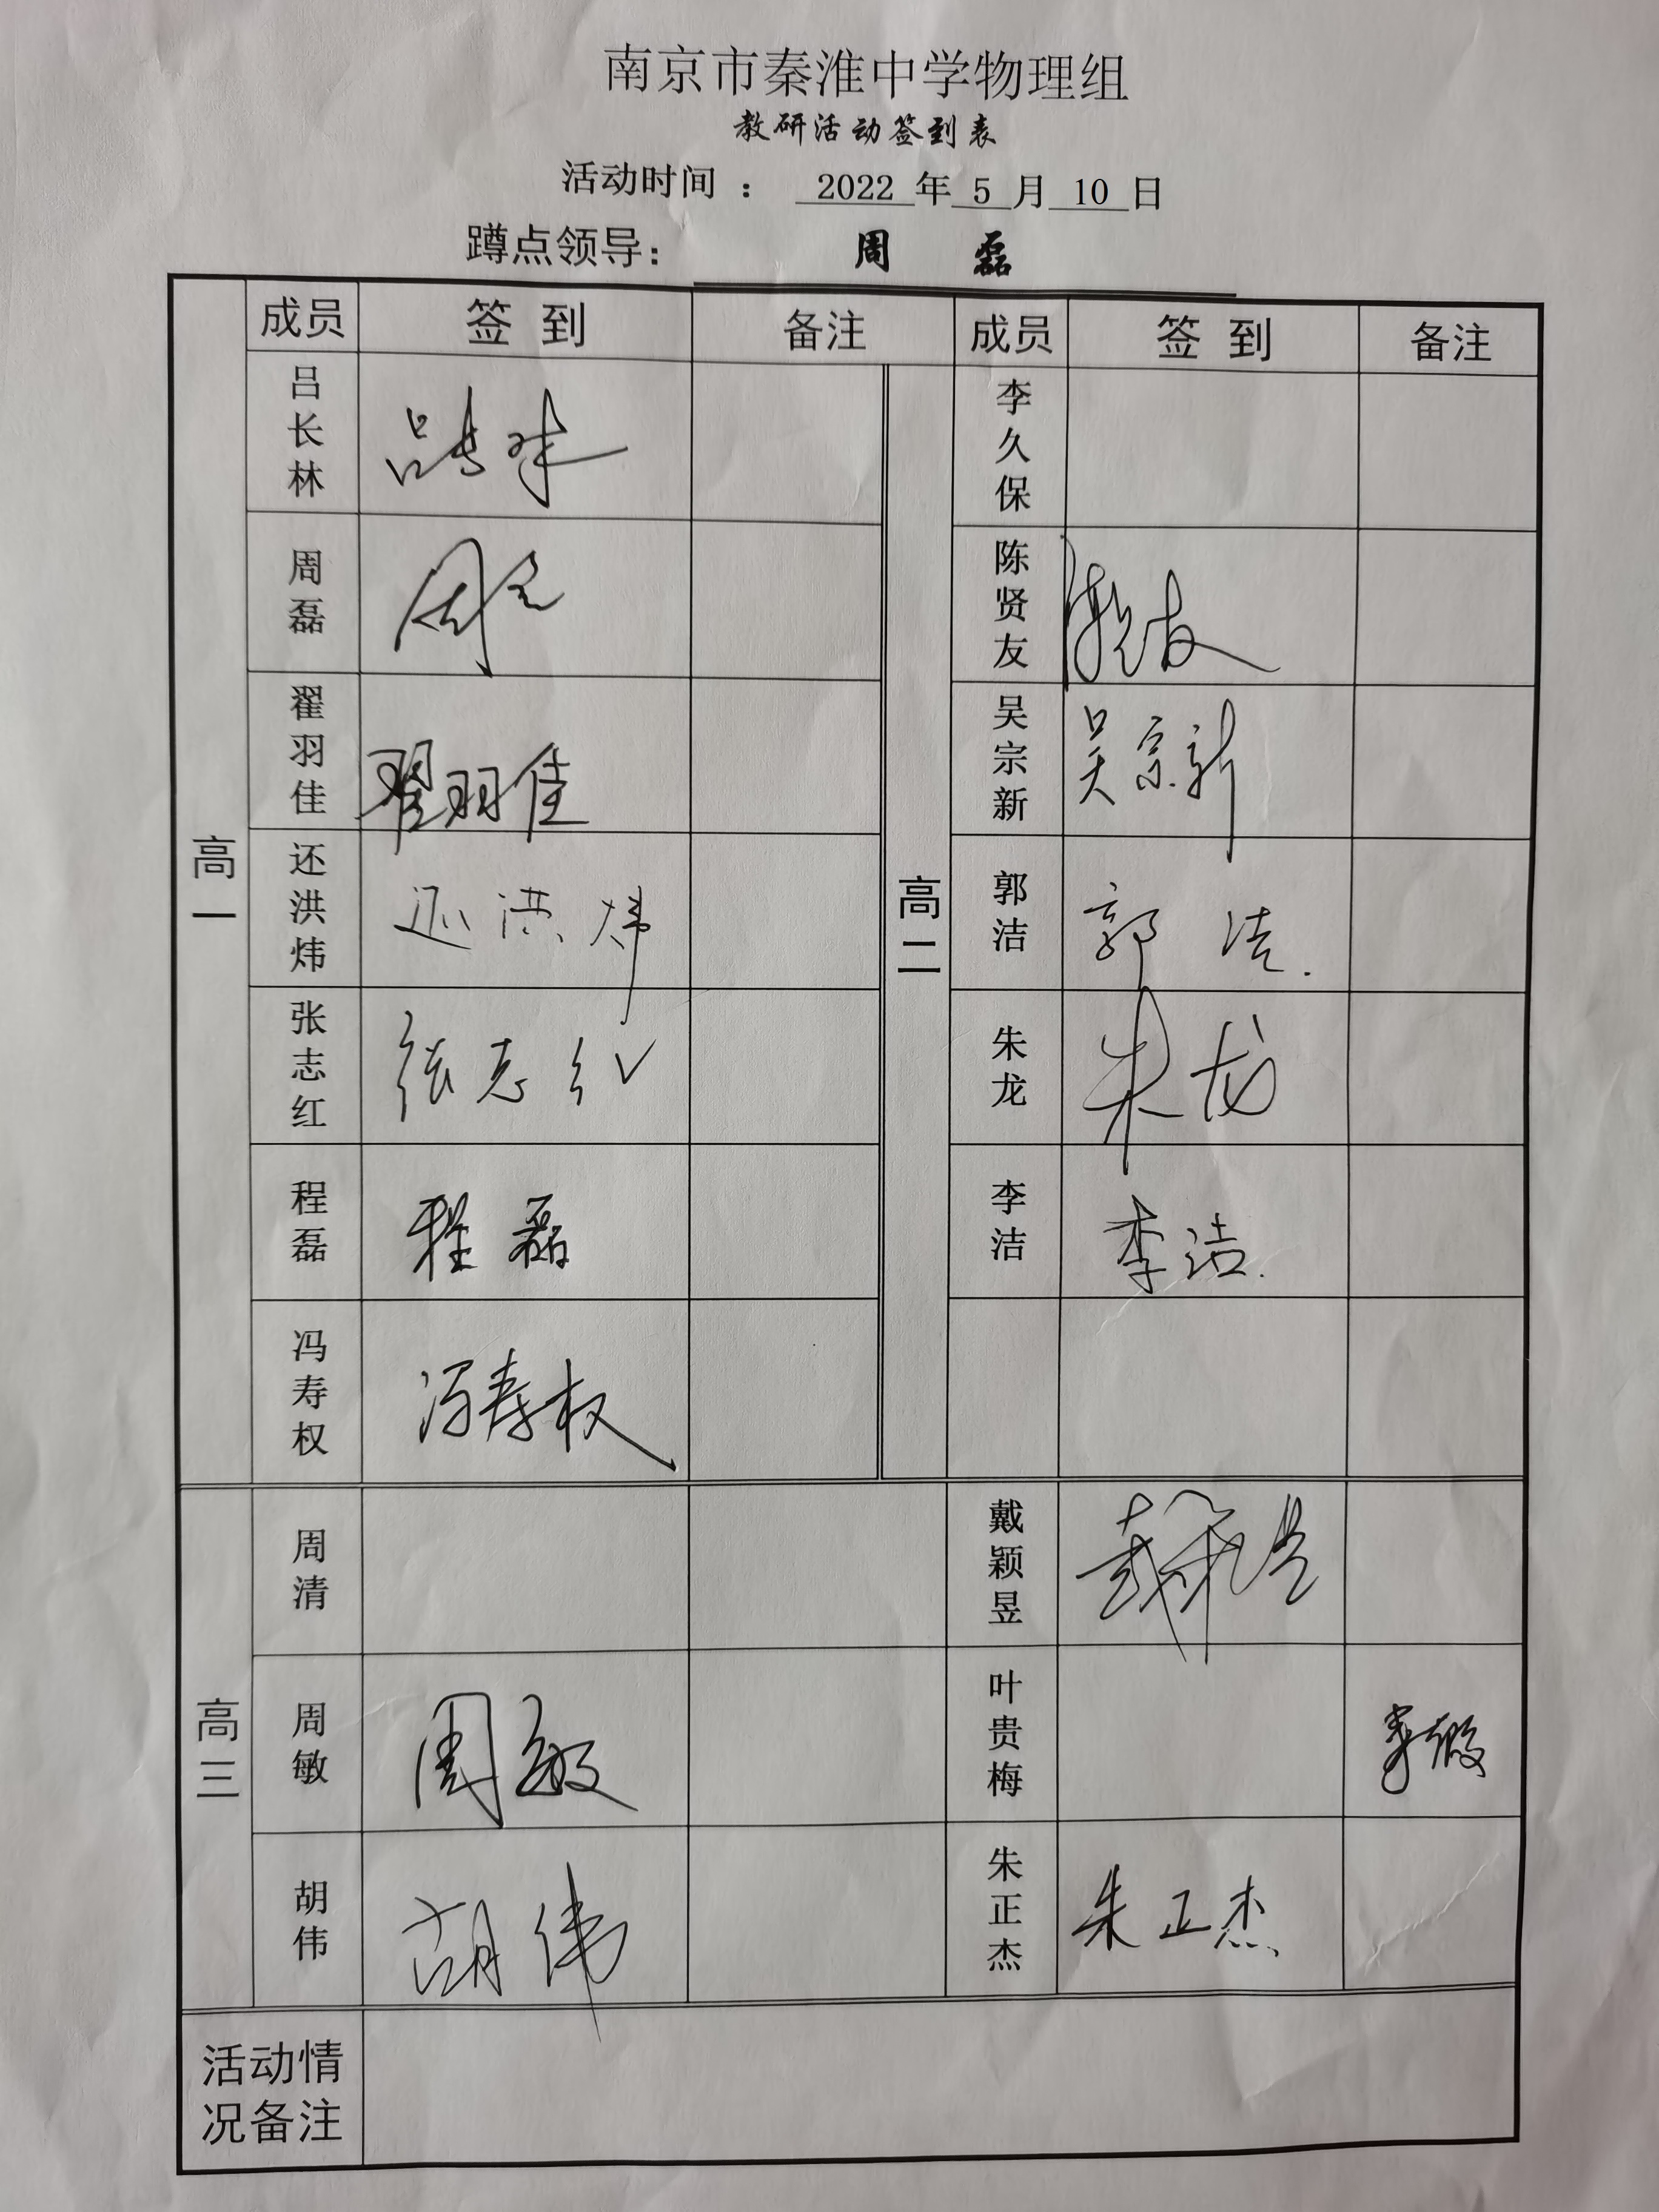 南京市秦淮中学物理组
教研活动签到表
活动时间 : 2022 年 5 月 10 日
蹲点领导: 周 磊
成员 签 到 备注 成员 签 到 备注
高一
吕长林 吕长林
周磊 周磊
翟羽佳 翟羽佳
还洪炜 还洪炜
张志红 张志红
程磊 程磊
冯寿权 冯寿权
高二
李久保
陈贤友 陈贤友
吴宗新 吴宗新
郭洁 郭洁.
朱龙 朱龙
李洁 李洁.
高三
周清
周敏 周敏
胡伟 胡伟
戴颖昱 戴颖昱
叶贵梅
朱正杰 朱正杰
活动情
况备注